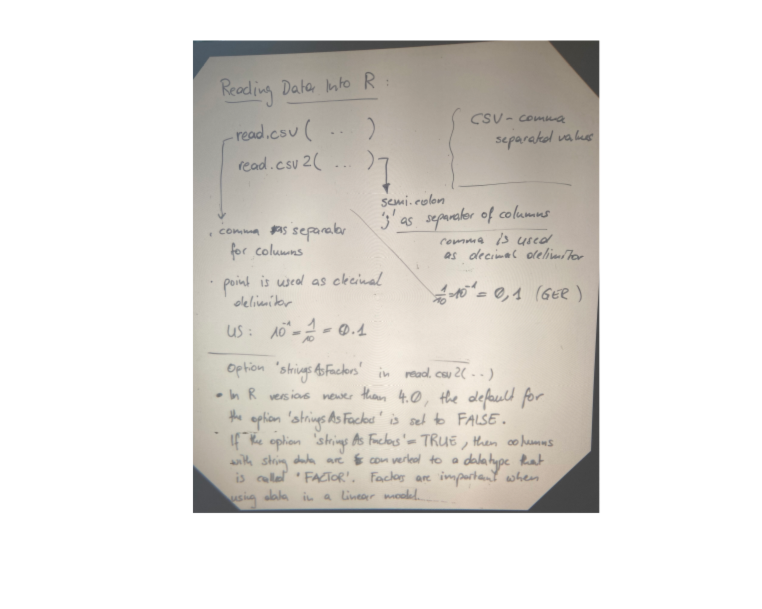 Reading Data Into R :
read.csv ( .. )
read.csv2( ... )
CSV - comma
separated values
comma as separator
for columns
• point is used as decimal
delimitor
US: 10⁻¹ = 1/10 = 0.1
semi.colon
';' as separator of columns
comma is used
as decimal delimitor
1/10 = 10⁻¹ = 0,1 (GER)
Option 'stringsAsFactors' in read.csv2(..)
• In R versions newer than 4.0, the default for
the option 'stringsAsFactors' is set to FALSE.
• If the option 'stringsAsFactors' = TRUE, then columns
with string data are converted to a datatype that
is called 'FACTOR'. Factors are important when
using data in a linear model